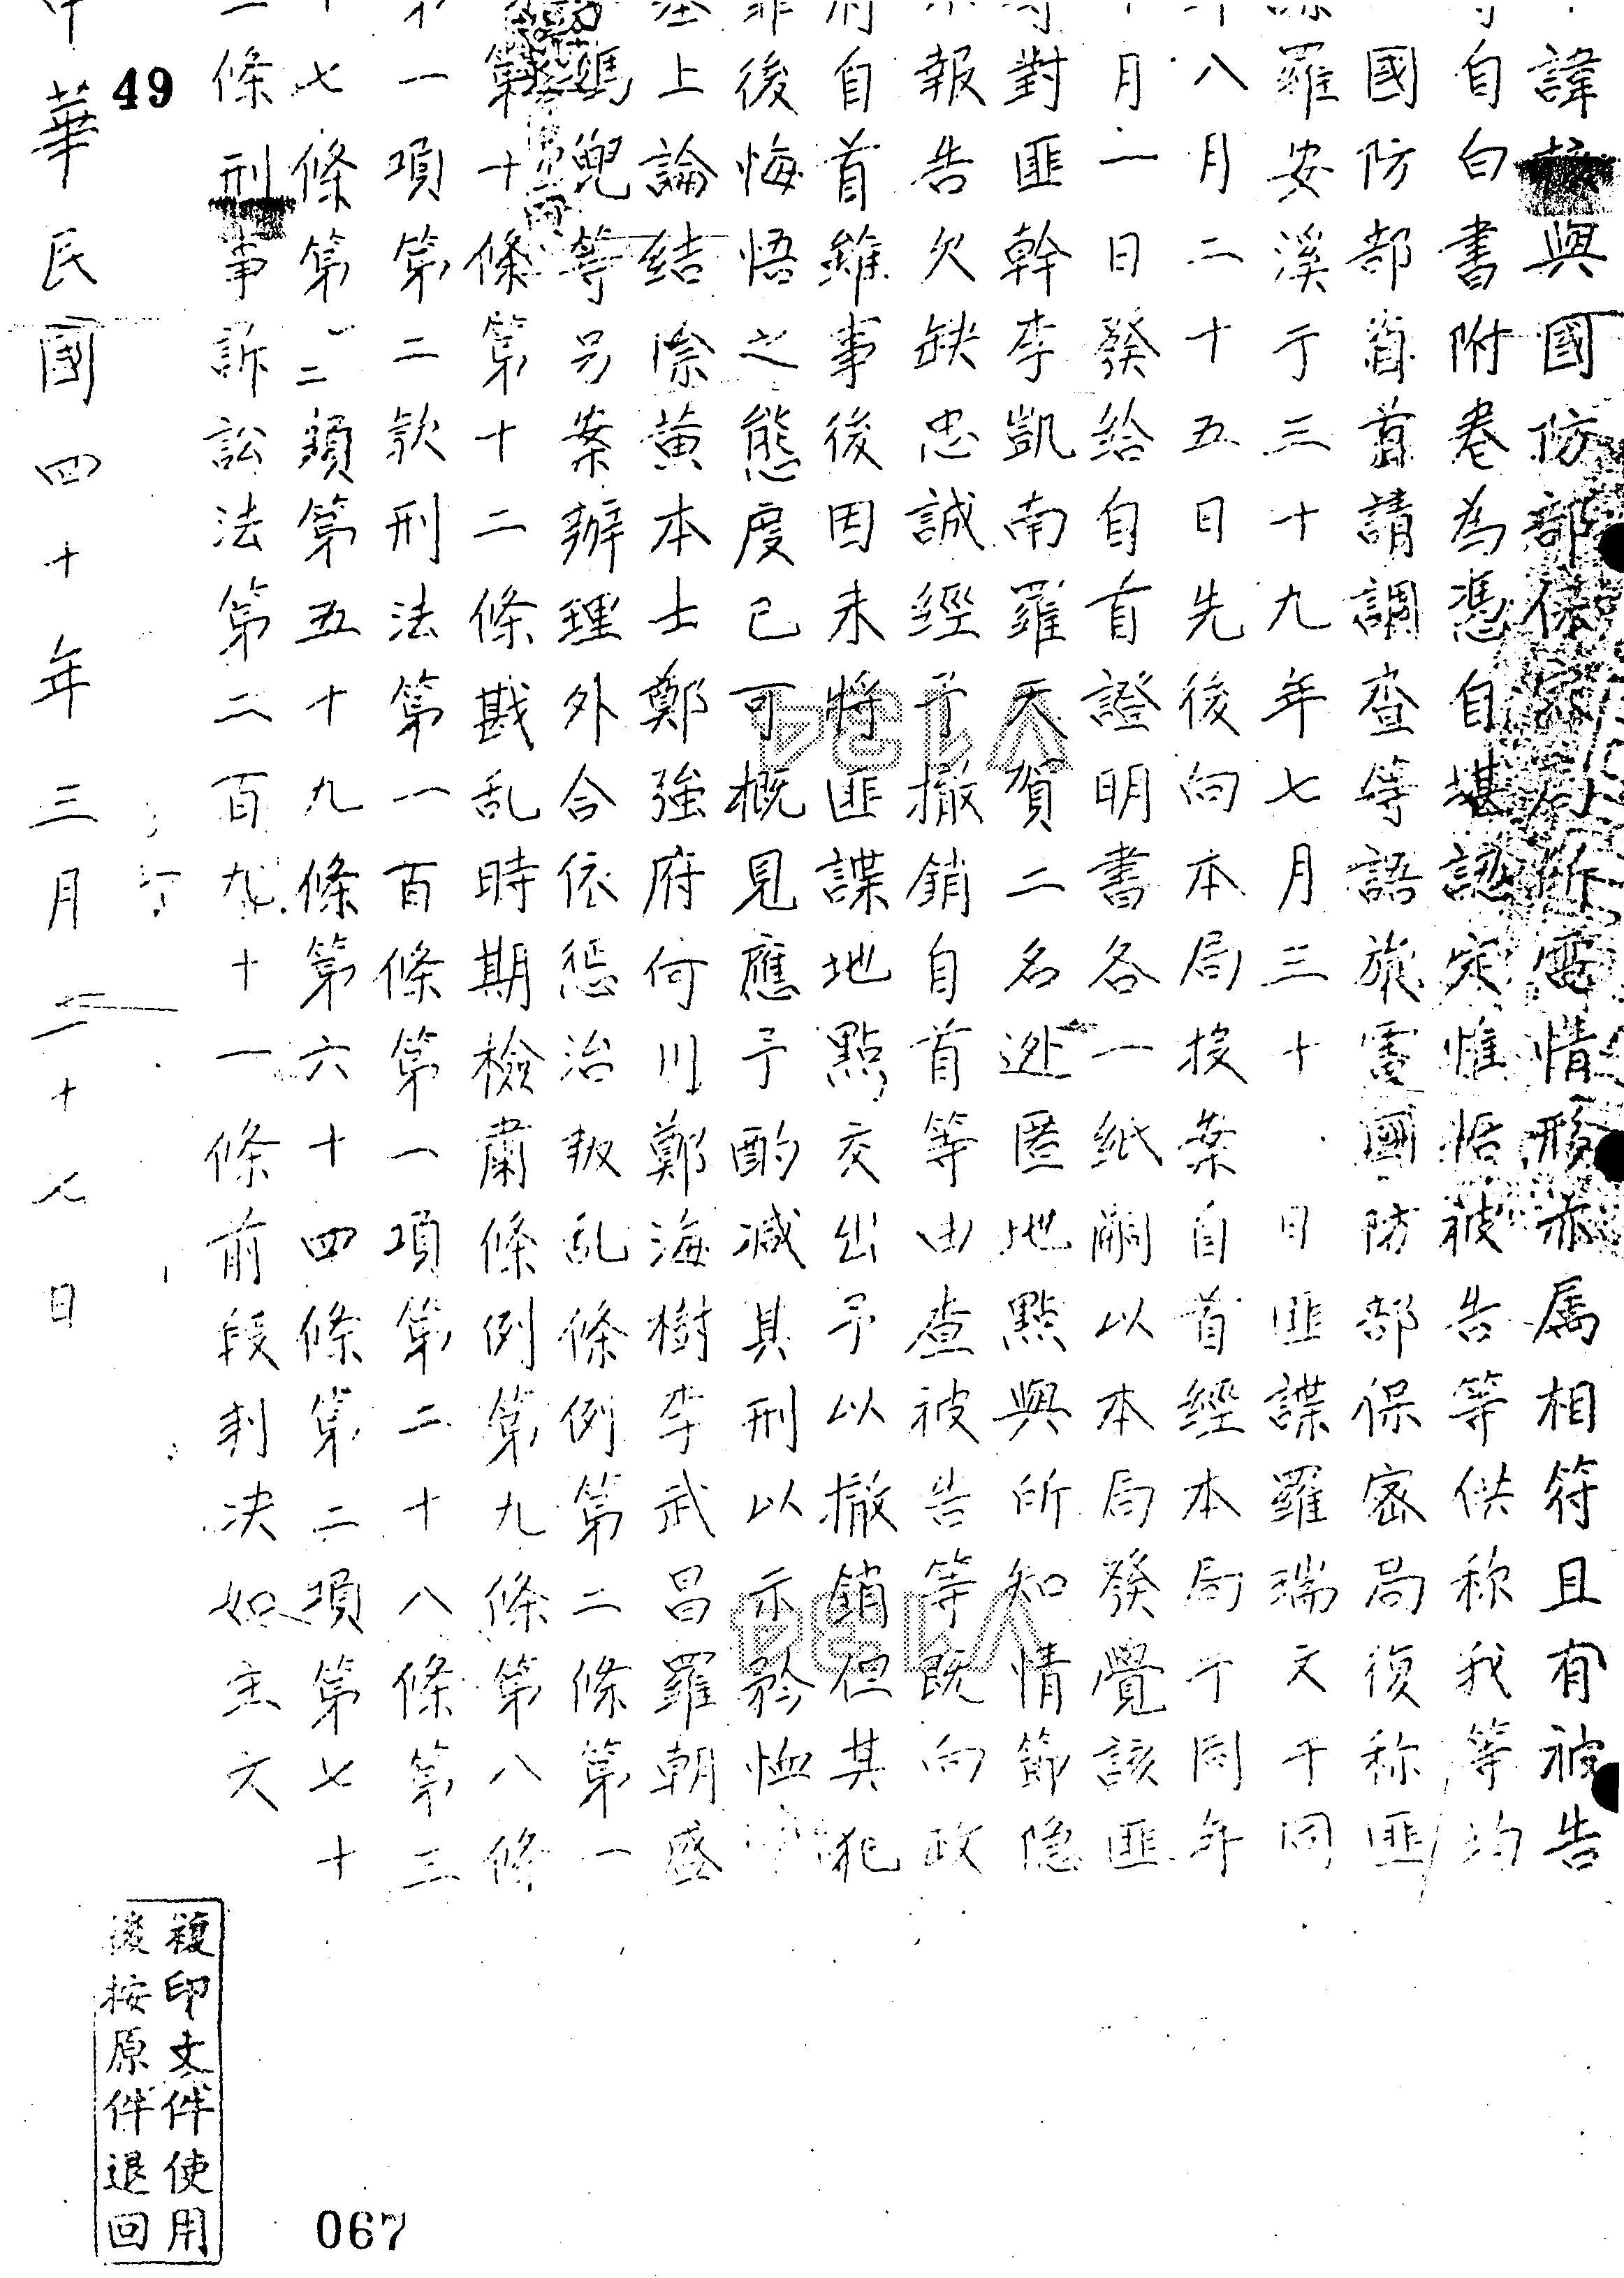 諱核與國防部保密局所電情形亦属相符且有被告
自白書附卷為憑自堪認定惟悟被告等供称我等均
國防部自首請調查等語旅電國防部保密局復称匪
羅安溪于三十九年七月三十日匪諜羅瑞文于同
八月二十五日先後向本局投案自首經本局于同年
月一日發給自首證明書各一紙嗣以本局發覺該匪
對匪幹李凱南羅天賀二名逃匿地點與所知情節隐
報告欠缺忠誠經予撤銷自首等由查被告等既向政
自首雖事後因未將匪諜地點交出予以撤銷但其犯
後悔悟之態度已可概見應予酌减其刑以示矜恤
上論結除黃本士鄭強府何川鄭海樹李武昌羅朝盛
媽兜等另案辦理外合依惩治叛乱條例第二條第一
第十條第十二條戡乱時期檢肅條例第九條第八條
一項第二款刑法第一百條第一項第二十八條第三
七條第二項第五十九條第六十四條第二項第七十
條刑事訴訟法第二百九十一條前段判决如主文
華民國四十年三月二十八日
49
複印文件使用
後按原件退回
067